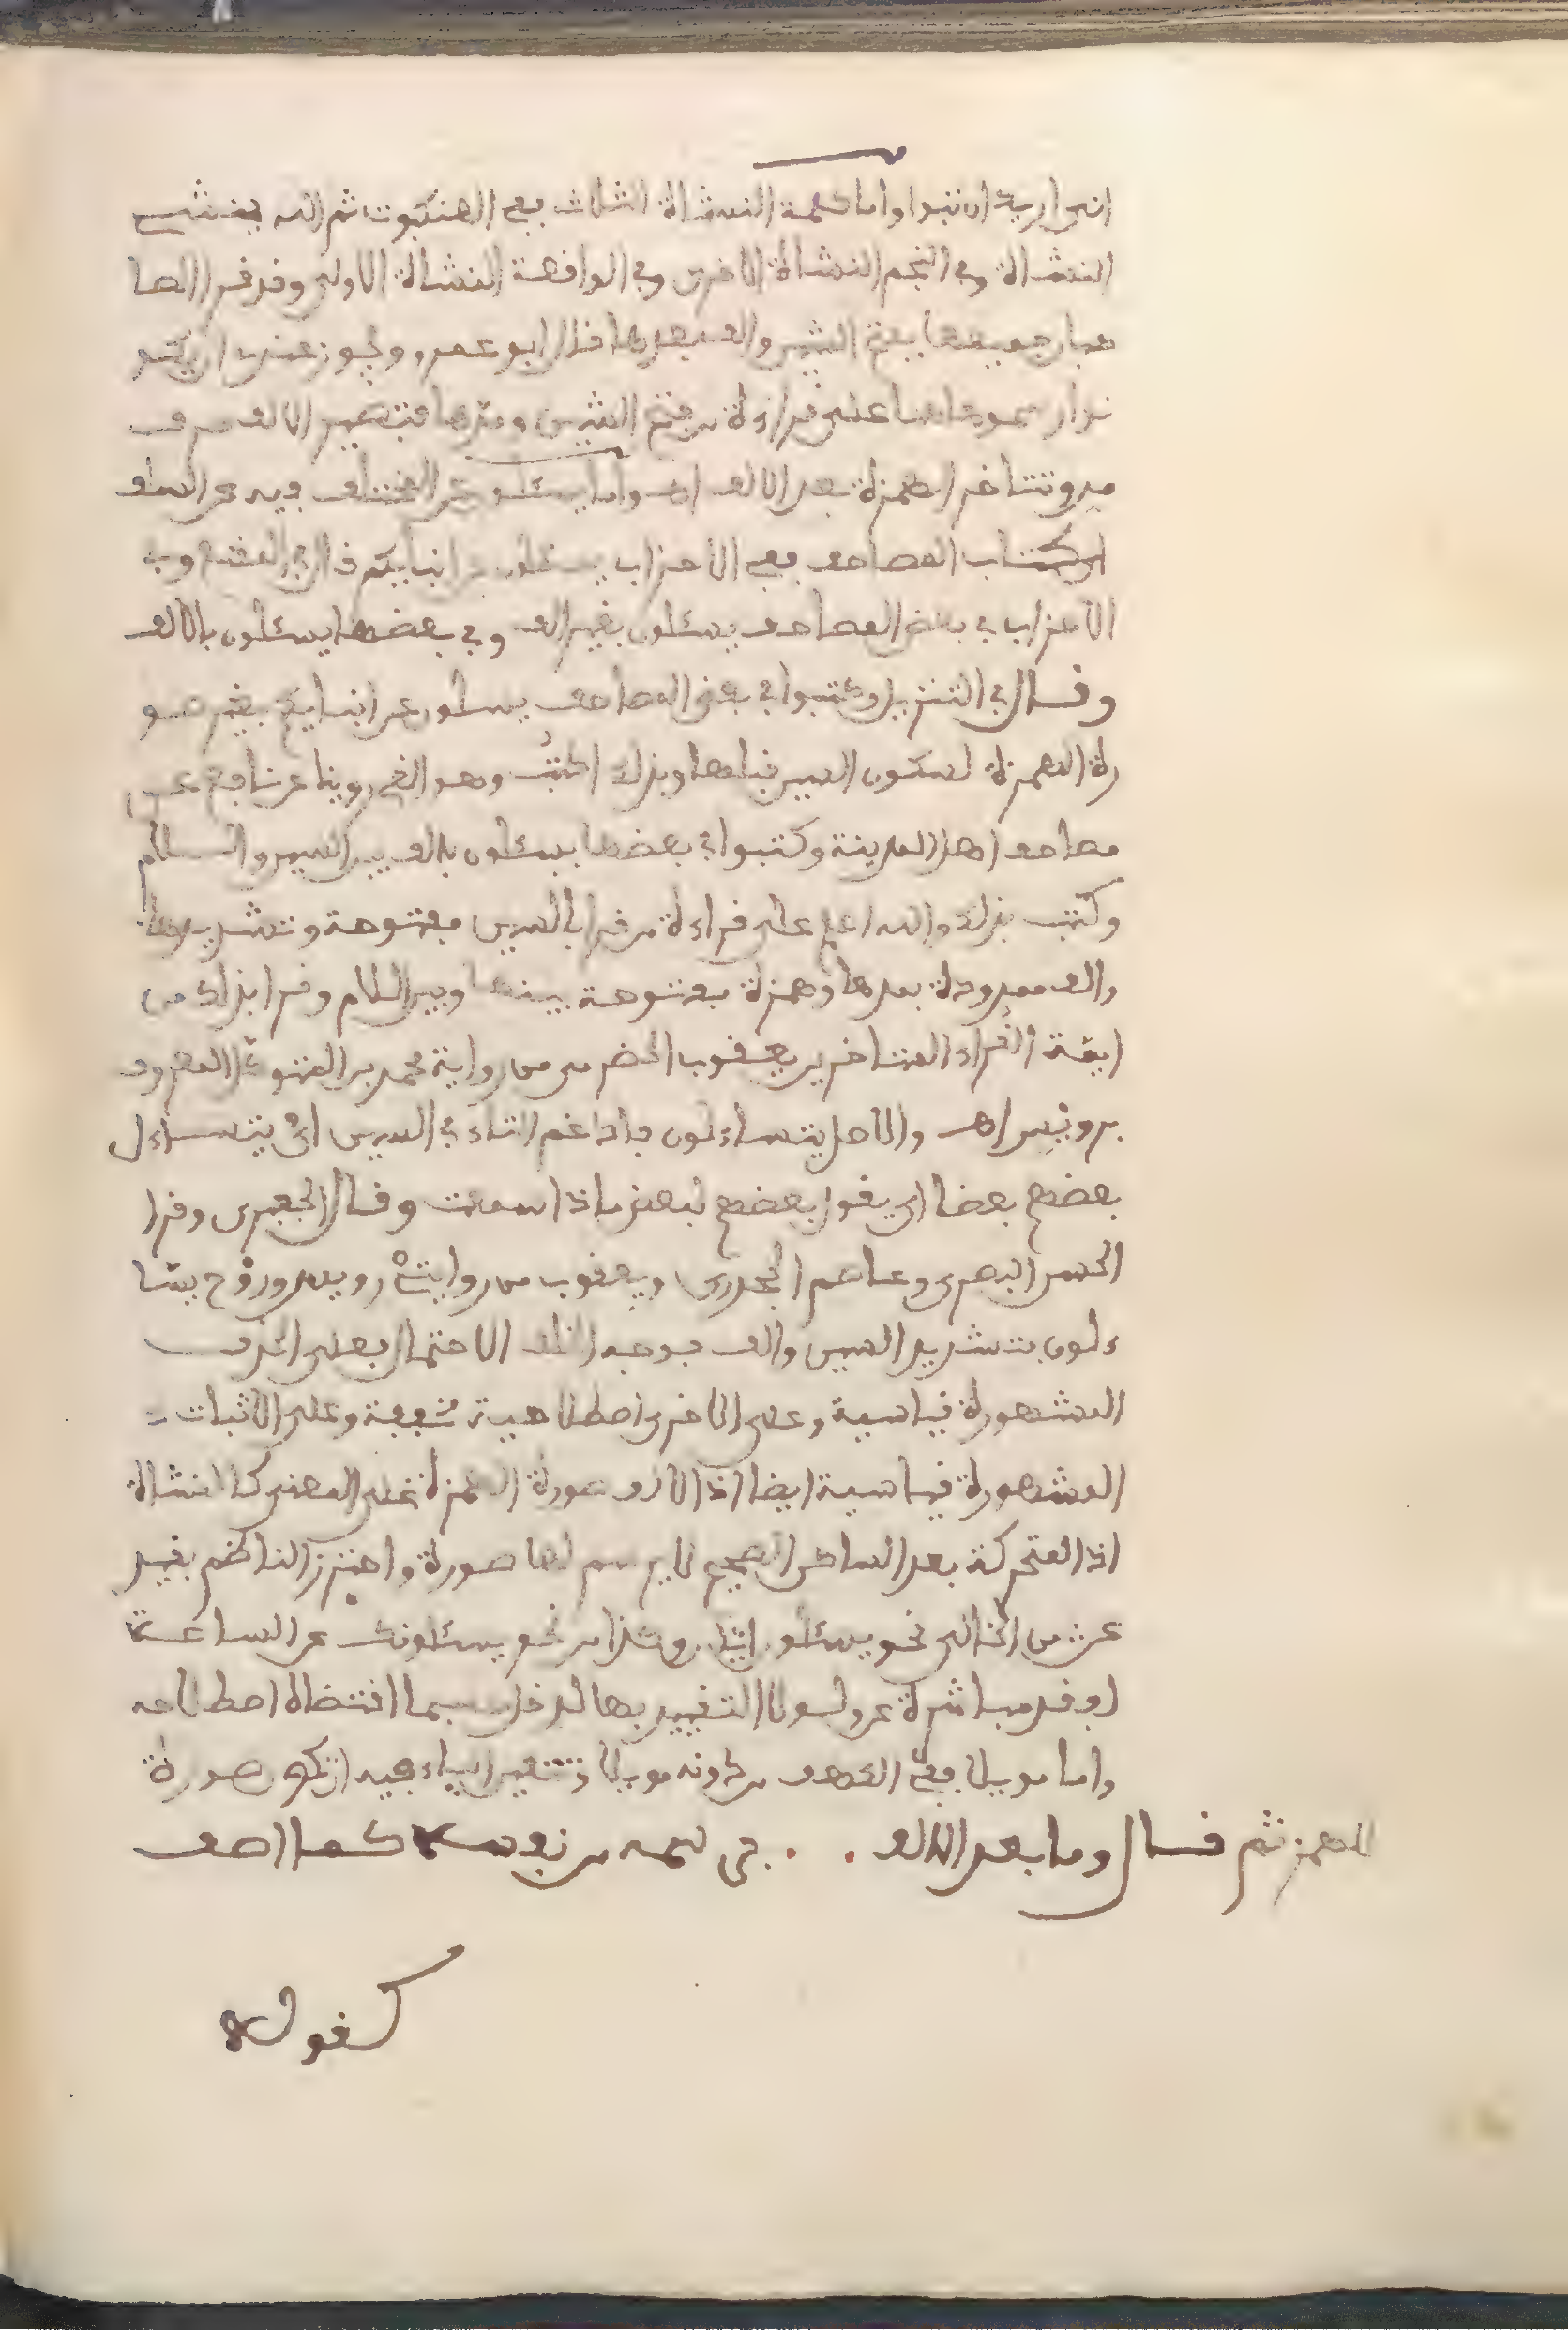 اني اريد ان تبوا واما كلمة النشاة الثلاث ففي العنكبوت ثم الله ينشئ
النشاة وفي النجم النشاة الاخرى وفي الواقعة النشاة الاولى وقد قرا
جميعها بفتح الشين والف بعدها قال ابو عمرو ويجوز عندي ان يكو
على قراءة من فتح الشين ومدها
همزة بعد الالف اهـ واما يسئلون المختلف فيه
كتاب المصاحف ففي الاحزاب يسئلون عن انبايكم قال في المقنع وفي
الاحزاب في بعض المصاحف يسئلون بغير الف وفي بعضها يساءلون بالالف
وقال في التنزيل وكتبوا في بعض المصاحف يسئلون عن انبايكم بغير صو
رة الهمزة لسكون السين قبلها وبذلك اكتب وهو الذي روينا عن نافع عن
مصاحف اهل المدينة وكتبوا في بعضها يسئلون بالف بين السين واللام
وكتب بذلك والله اعلم على قراءة من قرا بالسين مفتوحة وتشديدها
والف ممدودة بعدها وهمزة مفتوحة بينها وبين اللام وقرا بذلك من
ايمة القراء المتاخرين يعقوب الحضرمي من رواية محمد بن المتوكل المعروف
برويس اهـ والاصل يتساءلون فادغم التاء في السين اي يتساءل
بعضهم بعضا اي يقول بعضهم لبعض ماذا سمعت وقال الجعبري وقرا
الحسن البصري وعاصم الجحدري ويعقوب من روايتيْ رويس وروْح يسّا
ءلون بتشديد السين والف فوجه الخلف الاحتمال فعلى الحذف
المشهورة قياسية وعلى الاخرى اصطلاحية مخففة وعلى الاثبات
المشهورة قياسية ايضا اذ الالف صورة الهمزة على المعنى كالنشاة
اذ المتحركة بعد الساكن الصحيح لا يرسم لها صورة واحترز الناظم بقيد
عن من الخالي نحو يسئلون ايان وكذا من نحو يسئلونك عن الساعة
لفقد مباشرة عن ولولا التقييد بها لدخل بما اقتضاه اصطلاحه
واما مويلا ففي الكهف من دونه مويلا وتتعين الياء فيه ان تكون صورة
للهمز ثم قال وما بعد الالف . . في كلمه من نفسه كما اصف
كقوله